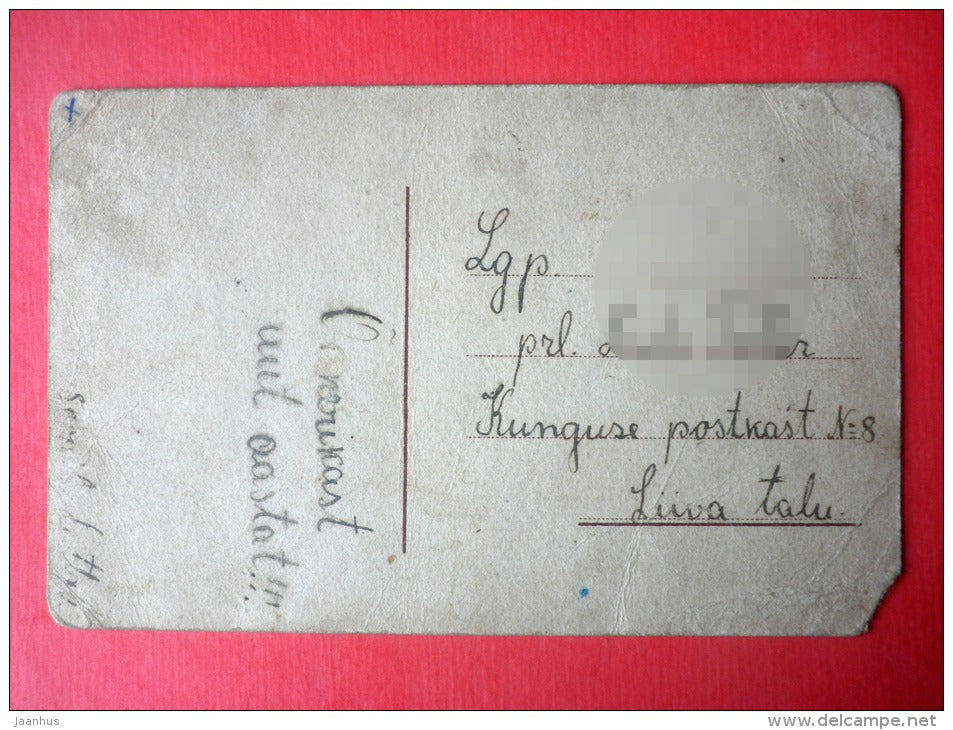 Lgp.
prl.
Kunguse postkast №8
Liiva talu.
Õnnerikast
uut aastat!!!
Jaanhus
www.delcampe.net